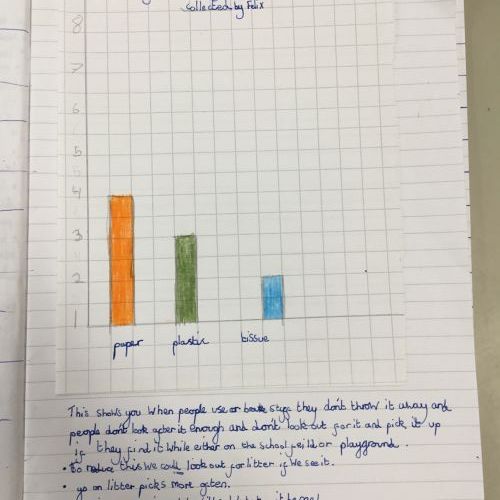 collected by Felix
8
7
6
5
4
3
2
1
paper plastic tissue
This shows you when people use or stuff they don't throw it away and
people don't look after it enough and don't look out for it and pick it up
if they find it while either on the school feild or playground.
• to reduce this we could look out for litter if we see it.
• go on litter picks more often.